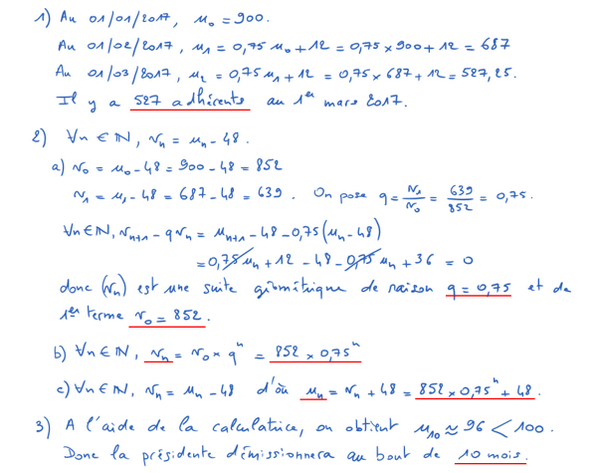 1) Au 01/01/2017, u₀ = 900.
Au 01/02/2017, u₁ = 0,75 u₀ + 12 = 0,75 × 900 + 12 = 687
Au 01/03/2017, u₂ = 0,75 u₁ + 12 = 0,75 × 687 + 12 = 527,25.
Il y a 527 adhérents au 1er mars 2017.
2) ∀n ∈ ℕ, vₙ = uₙ - 48.
a) v₀ = u₀ - 48 = 900 - 48 = 852
v₁ = u₁ - 48 = 687 - 48 = 639. On pose q = v₁/v₀ = 639/852 = 0,75.
∀n ∈ ℕ, vₙ₊₁ - qvₙ = uₙ₊₁ - 48 - 0,75(uₙ - 48)
= 0,75 uₙ + 12 - 48 - 0,75 uₙ + 36 = 0
donc (vₙ) est une suite géométrique de raison q = 0,75 et de
1er terme v₀ = 852.
b) ∀n ∈ ℕ, vₙ = v₀ × qⁿ = 852 × 0,75ⁿ
c) ∀n ∈ ℕ, vₙ = uₙ - 48 d'où uₙ = vₙ + 48 = 852 × 0,75ⁿ + 48.
3) A l'aide de la calculatrice, on obtient u₁₀ ≈ 96 < 100.
Donc la présidente démissionnera au bout de 10 mois.